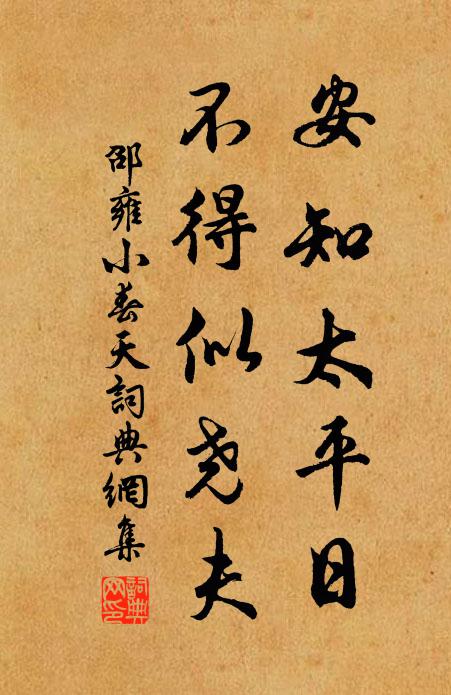 安知太平日
不得似尧夫
邵雍小春天詞典網集
詞典网印